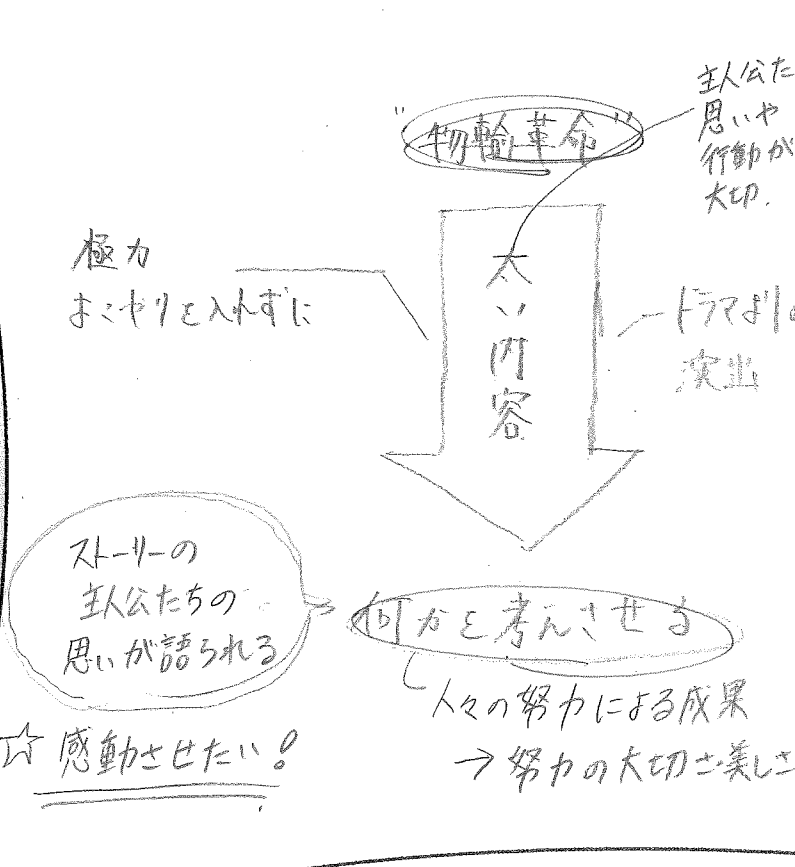 "物輸革命"
主人公た
思いや
行動が
大切.
極力
よこやりを入れずに
太い内容
ドラマよりの
演出
ストーリーの
主人公たちの
思いが語られる
何かを考えさせる
人々の努力による成果
→努力の大切さ美しさ
☆感動させたい!